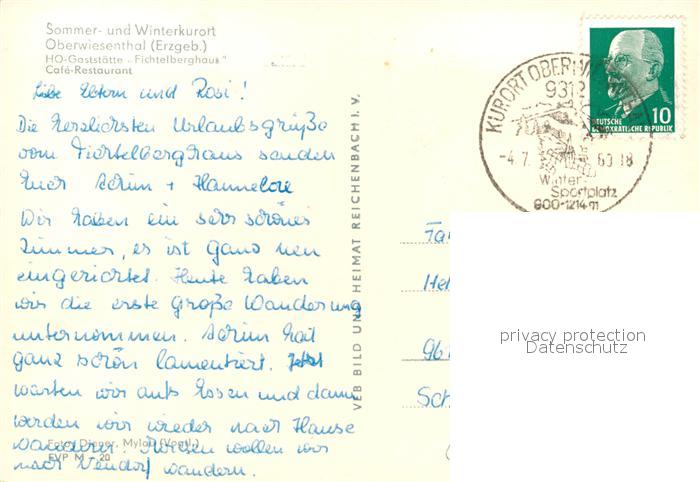 Sommer- und Winterkurort
Oberwiesenthal (Erzgeb.)
HO-Gaststätte „Fichtelberghaus"
Café-Restaurant
Liebe Eltern und Rosi!
Die herzlichsten Urlaubsgrüße
vom Fichtelberghaus senden
Euch Achim + Hannelore
Wir haben ein sehr schönes
Zimmer, es ist ganz neu
eingerichtet. Heute haben
wir die erste große Wanderung
unternommen. Achim hat
ganz schön lamentiert. Jetzt
warten wir aufs Essen und dann
werden wir wieder nach Hause
wandern. Morgen wollen wir
nach wandern.
Foto: Diener, Mylau (Vogtl.)
EVP M -.20
VEB BILD UND HEIMAT REICHENBACH I. V.
KURORT
9312
-4.7.
18
Winter-
Sportplatz
800-1214 m
DEUTSCHE
DEMOKRATISCHE REPUBLIK
10
Fa
He
961
Sch
privacy protection
Datenschutz